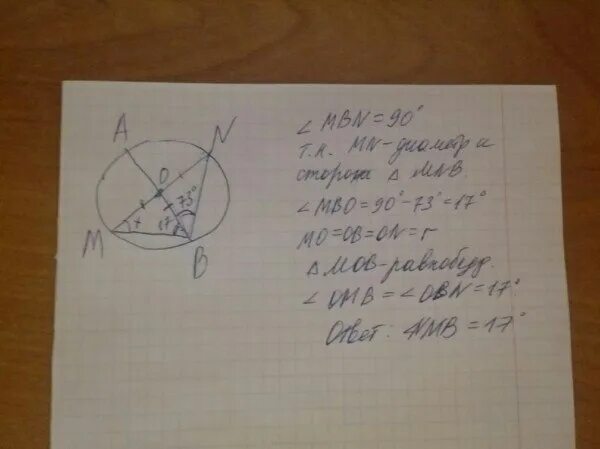 A
N
O
73°
17°
x
M
B
∠ MBN = 90°
т.к. MN - диаметр и
сторона △ MNB.
∠ MBO = 90° - 73° = 17°
MO = OB = ON = r
△ MOB - равнобедр.
∠ OMB = ∠ OBN = 17°
Ответ: ∠NMB = 17°